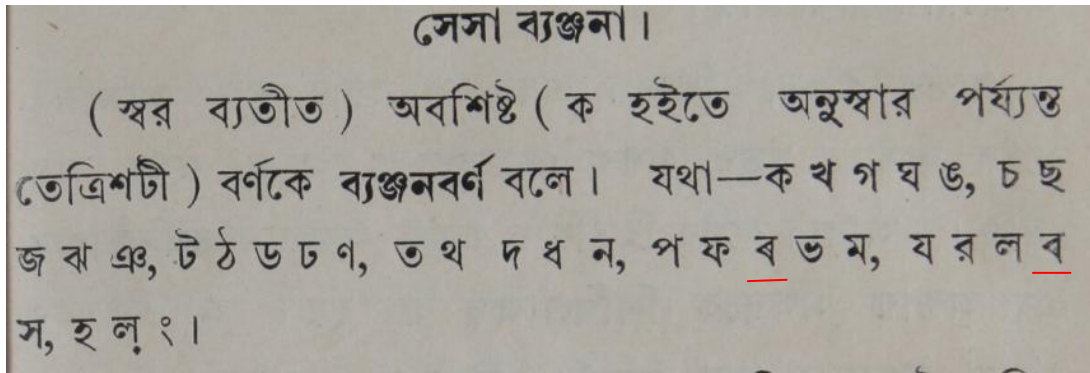 সেসা ব্যঞ্জনা।
( স্বর ব্যতীত ) অবশিষ্ট ( ক হইতে অনুস্বার পর্য্যন্ত
তেত্রিশটী ) বর্ণকে ব্যঞ্জনবর্ণ বলে। যথা—ক খ গ ঘ ঙ, চ ছ
জ ঝ ঞ, ট ঠ ড ঢ ণ, ত থ দ ধ ন, প ফ ব ভ ম, য র ল ব
স, হ ল় ং।